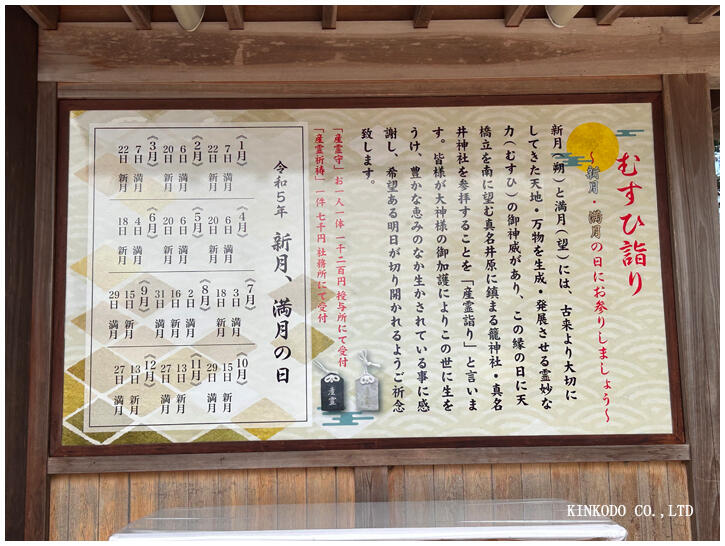 むすひ詣り
～新月・満月の日にお参りしましょう～
新月（朔）と満月（望）には、古来より大切に
してきた天地・万物を生成・発展させる霊妙な
力（むすひ）の御神威があり、この縁の日に天
橋立を南に望む真名井原に鎮まる籠神社・真名
井神社を参拝することを「産霊詣り」と言いま
す。皆様が大神様の御加護によりこの世に生を
うけ、豊かな恵みのなか生かされている事に感
謝し、希望ある明日が切り開かれるようご祈念
致します。
「産霊守」お一人一体 一千二百円 授与所にて受付
「産霊祈祷」一件 七千円 社務所にて受付
産霊
令和5年 新月、満月の日
《1月》
7日 満月
22日 新月
《2月》
6日 満月
20日 新月
《3月》
7日 満月
22日 新月
《4月》
6日 満月
20日 新月
《5月》
6日 満月
20日 新月
《6月》
4日 満月
18日 新月
《7月》
3日 満月
18日 新月
《8月》
2日 満月
16日 新月
31日 満月
《9月》
15日 新月
29日 満月
《10月》
15日 新月
29日 満月
《11月》
13日 新月
27日 満月
《12月》
13日 新月
27日 満月
KINKODO CO.,LTD